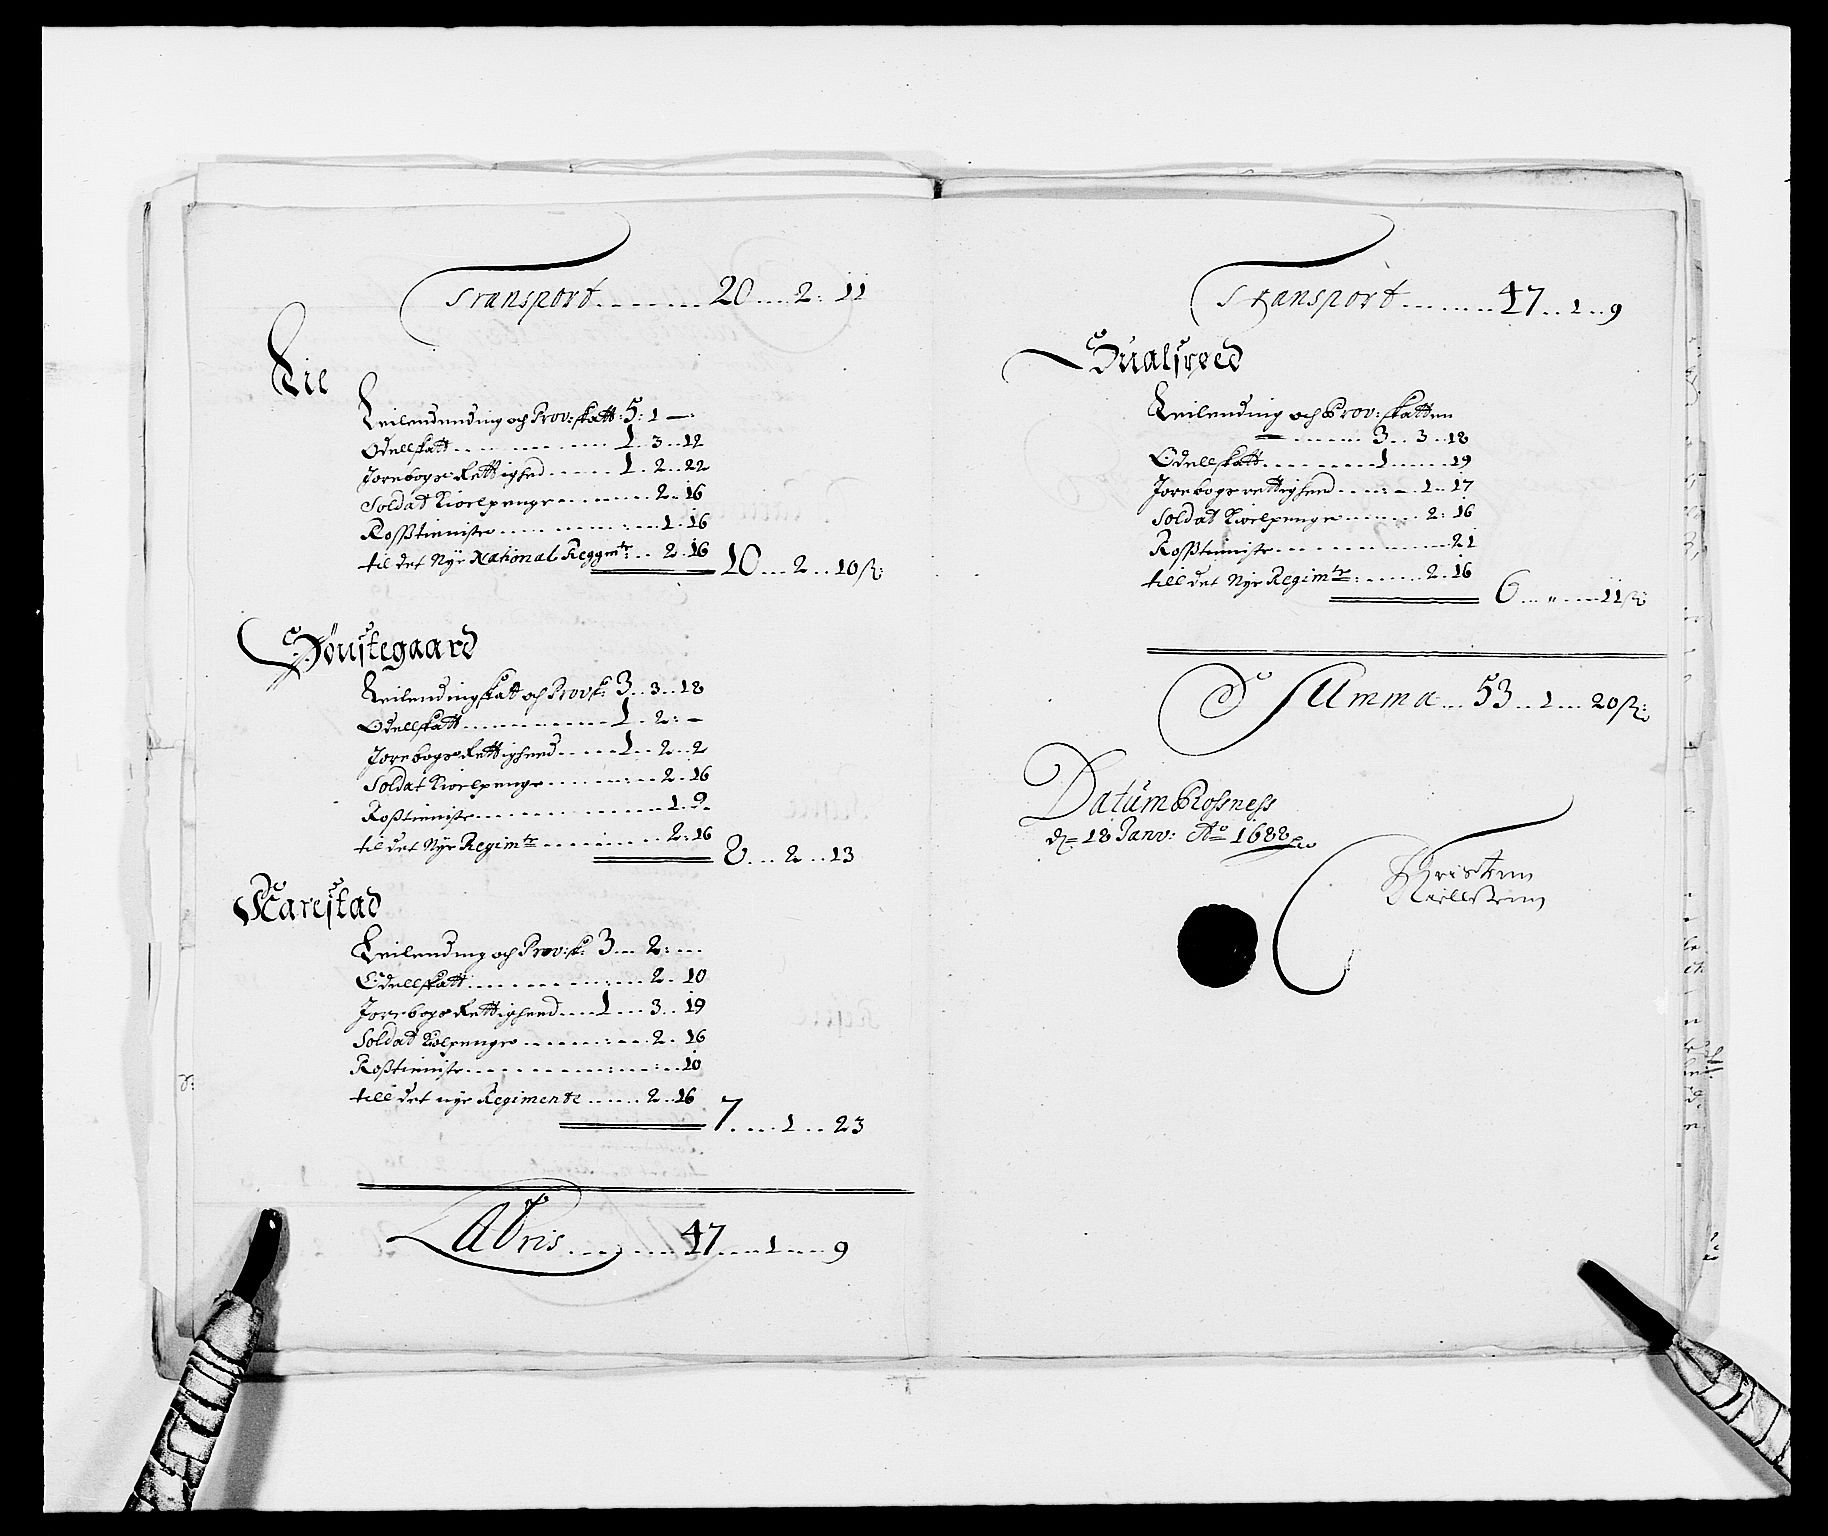 Transport ........ 20 .... 2 : 11
Lie
Leilendending och Prov: skatt : 5 : 1 —:
Odellskatt ........ 1 . 3 .. 12
Jorebogs Rettighed ...... 1 . 2 .. 22
Soldat Kiorlpenge ........ 2 .. 16
Rosstieniste ........ 1 . 16
til det Nye National Reggmtr : .. 2 . 16 10 .... 2 ... 10 sk:
Sönstegaard
Leilending skatt och Provsk: 3 .. 3 .. 18
Odellskatt ........ 1 . 2 : —
Jorebogs Rettigheed ...... 1 .. 2 .. 2
Soldat Kiorlpenge ........ 2 . 16
Rosstieniste ........ 1 . 9
til det Nye Regimtr ........ 2 : 16 8 .... 2 ... 13
Karestad
Leilending och Prov: sk: 3 ... 2 : ...
Odellskatt ........ 2 . 10
Jorebogs Rettigheed .... 1 ... 3 .. 19
Soldat Kiolpenge ........ 2 .. 16
Rosstieniste ........ 10
till det nye Regimente ...... 2 .. 16 7 ..... 1 ... 23
Lateris ........ 47 .... 1 .... 9
Transport ........ 47 .. 1 .. 9
Leilending och Prov: skatten
— ....... 3 .. 3 .. 18
Odellskatt ........ 1 ...... 19
Jorebogs rettigheed .... : — 1 .. 17
Soldat Kiorlpenge ........ 2 : 16
Rosstieniste ........ 21
till det Nye Regimtr : ....... 2 . 16 6 ... " ..... 11 sk:
Summa ... 53 .. 1 ... 20 sk:
Datum Rossness
d= 18 Janv: Ao 1688